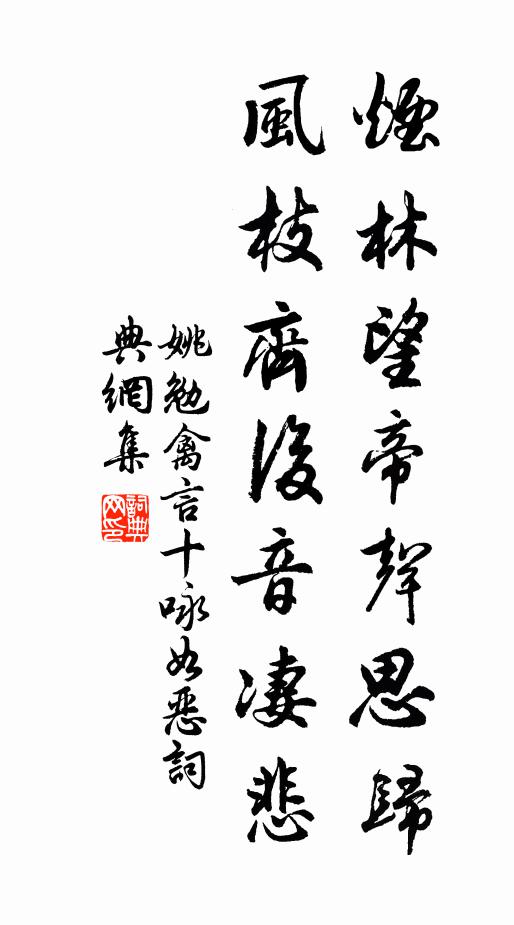 煙林望帝聲思歸
風枝齊後音淒悲
姚勉禽言十咏如惡詞
典網集
詞典網印